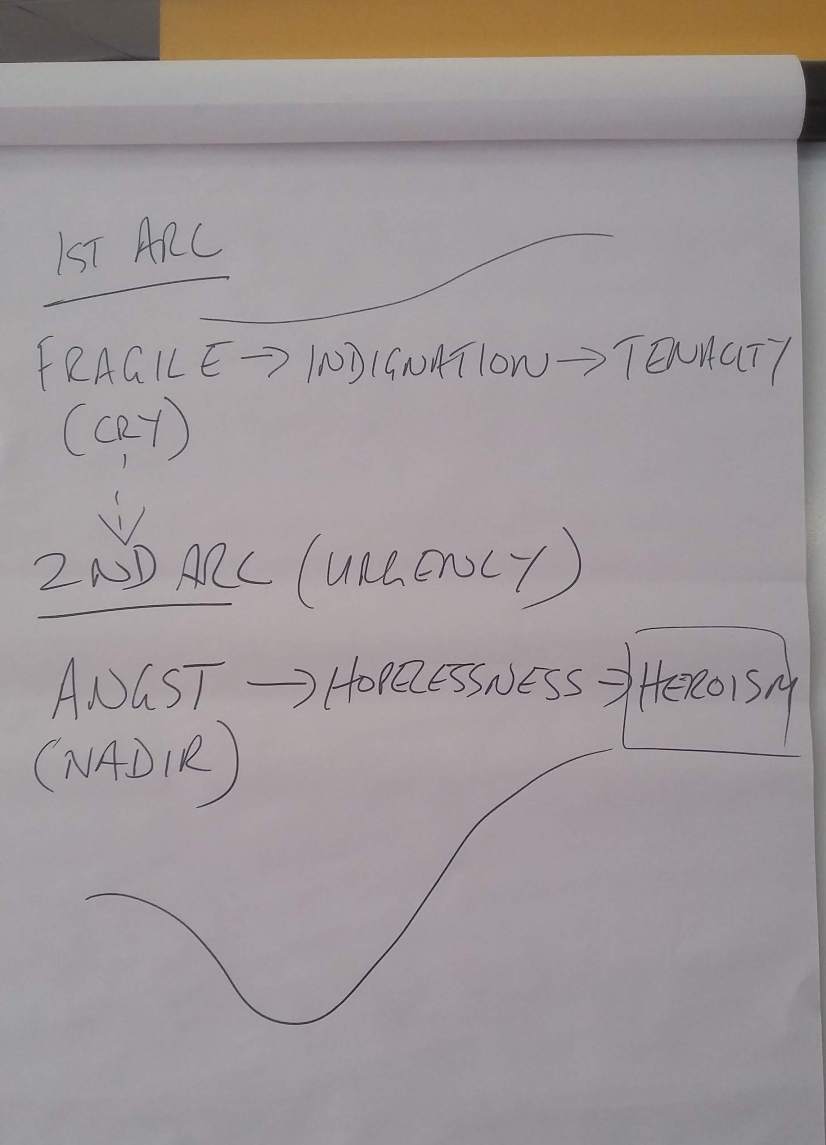 1ST ARC
FRAGILE → INDIGNATION → TENACITY
(CRY)
2ND ARC (URGENCY)
ANGST → HOPELESSNESS → HEROISM
(NADIR)